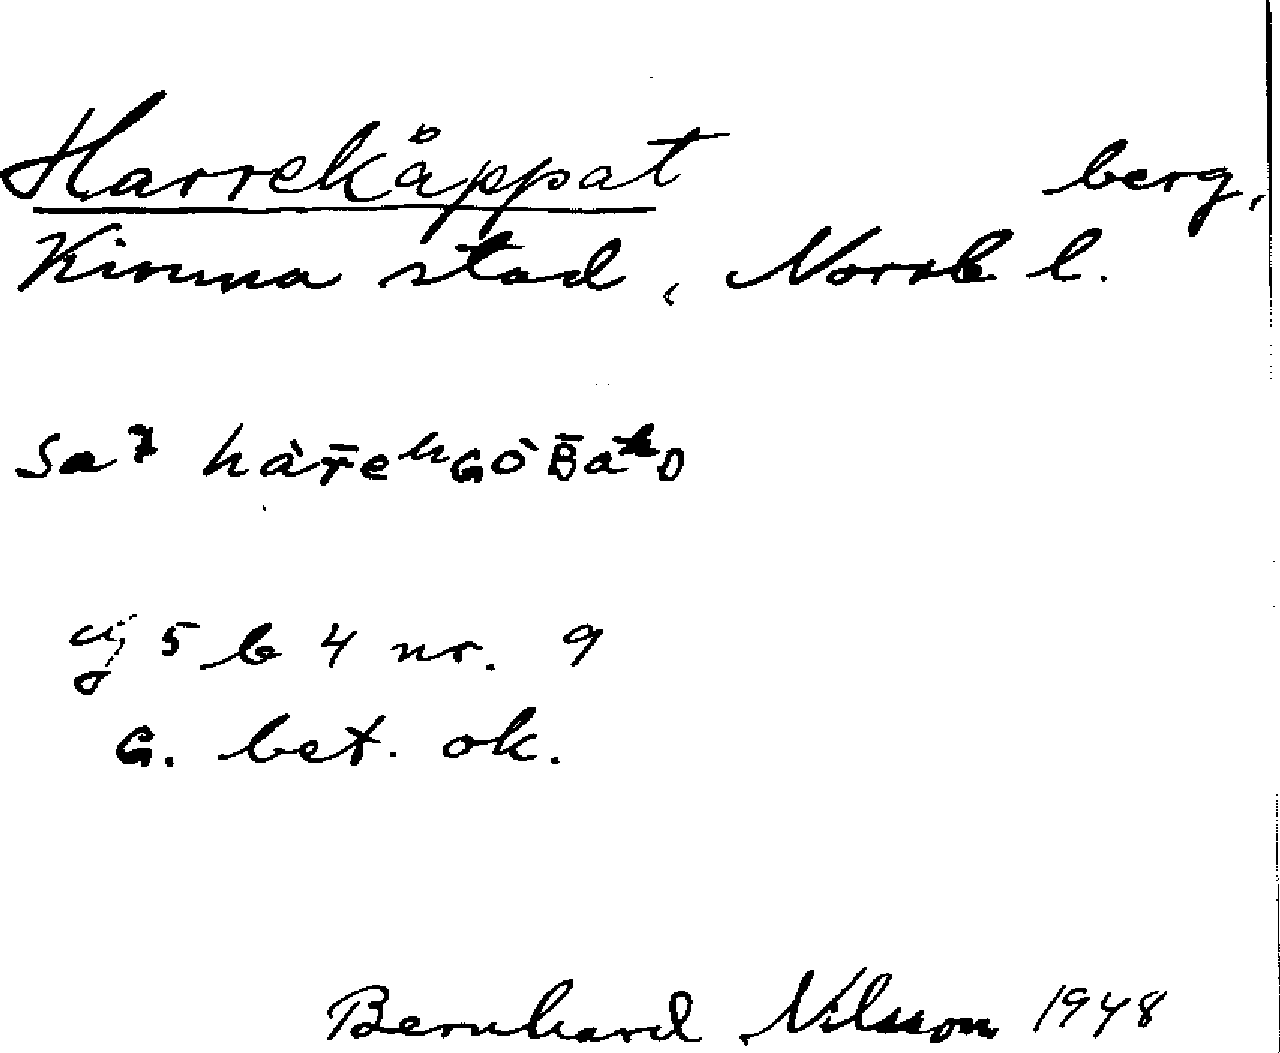 Harrekåppat berg,
Kinna stad, Norsk l.
Sa
ej 5 b 4 nr. 9
G. bet. ok.
Bernhard Nilsson 1948